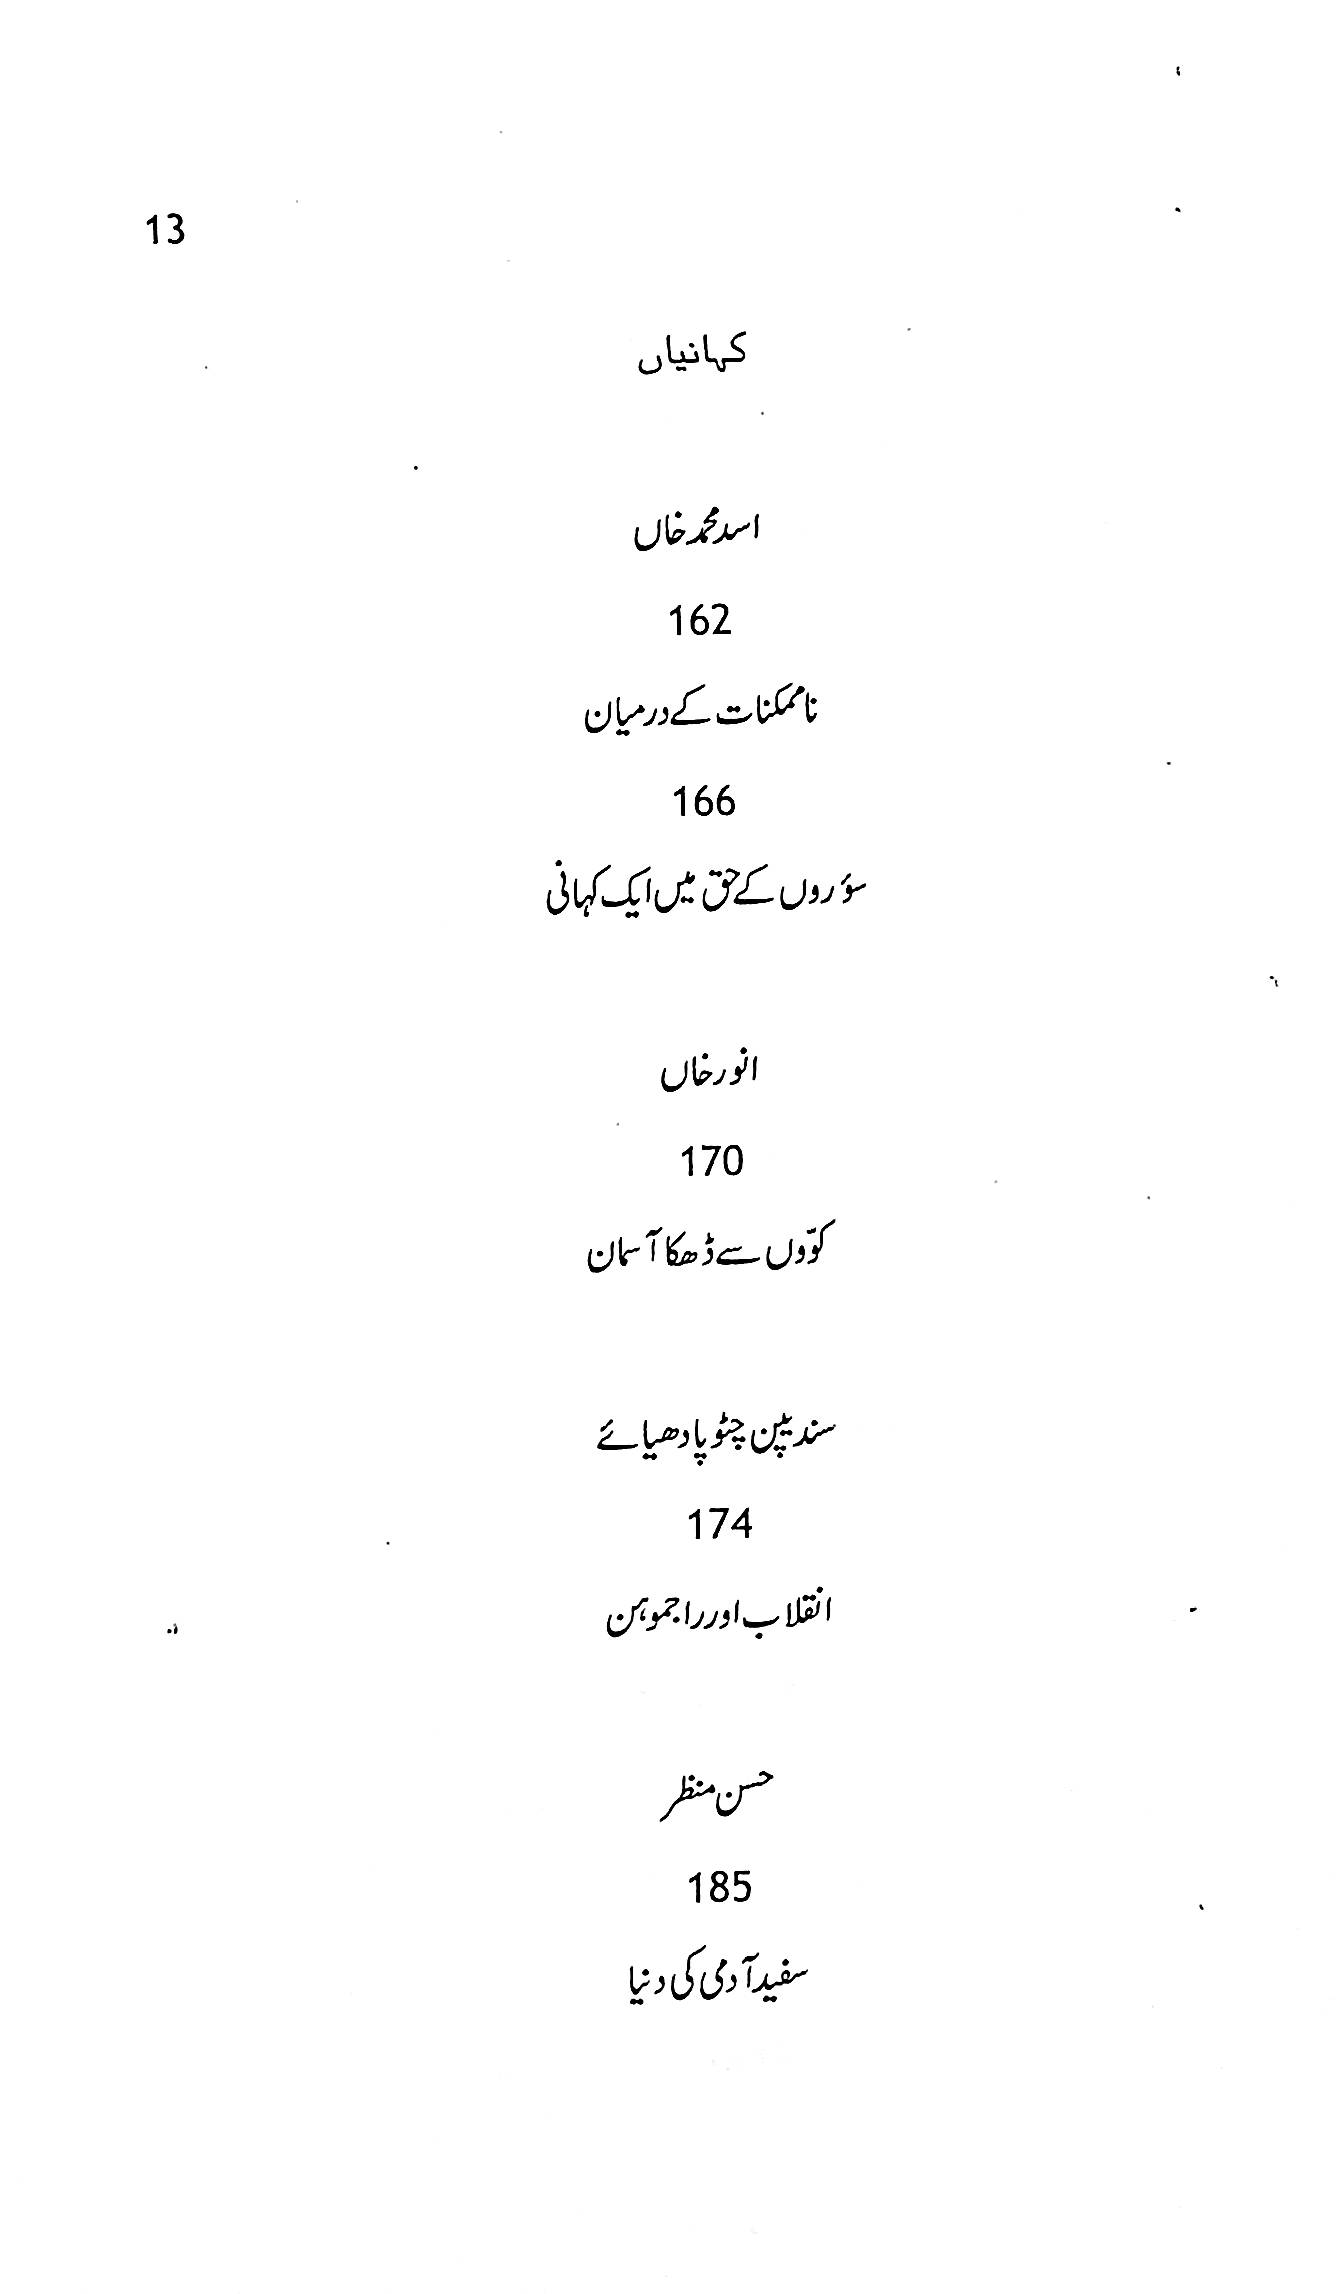 13
کہانیاں
اسد محمد خاں
162
ناممکنات کے درمیان
166
سؤروں کے حق میں ایک کہانی
انور خاں
170
کوّوں سے ڈھکا آسمان
سندیپن چٹوپادھیائے
174
انقلاب اور راجموہن
حسن منظر
185
سفید آدمی کی دنیا